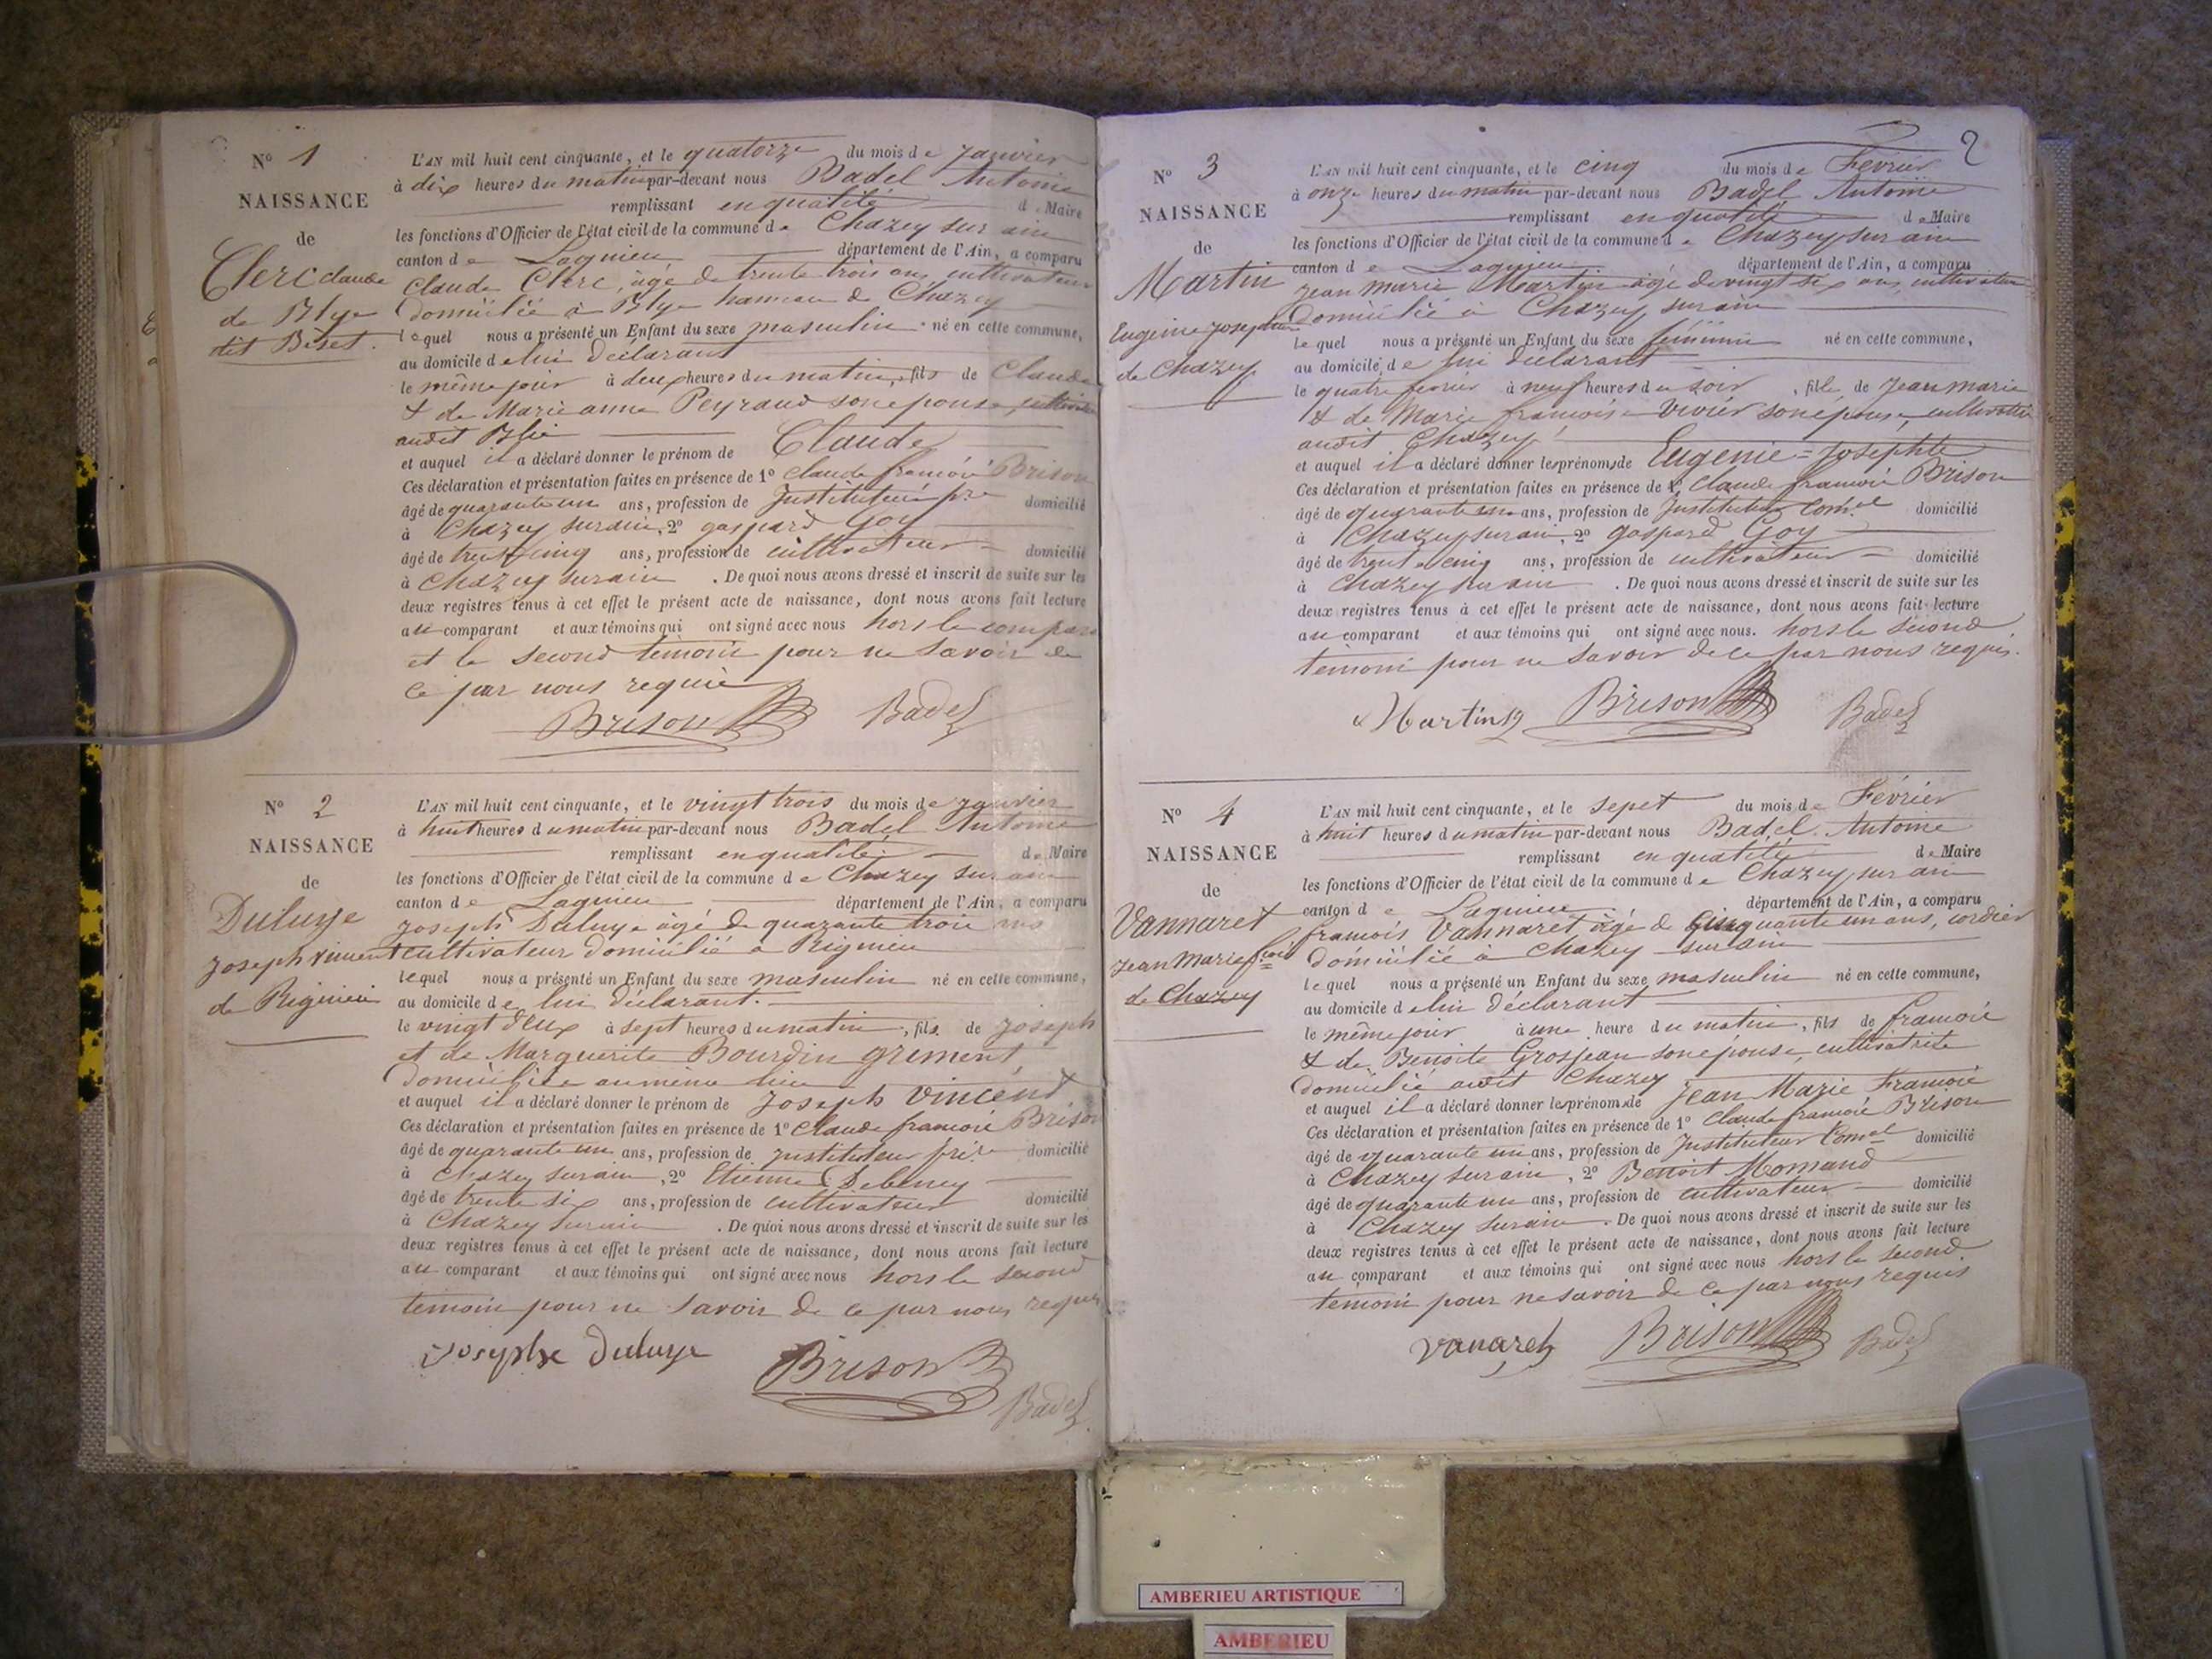 N° 1
NAISSANCE
de
Clerc claude
de Blye
dit Biset.
L'AN mil huit cent cinquante, et le quatorze du mois de Janvier
à dix heures du matin par-devant nous Badel Antoine
remplissant en qualité de Maire
les fonctions d'Officier de l'état civil de la commune de Chazey sur ain
canton de Lagnieu département de l'Ain, a comparu
Claude Clerc, âgé de trente trois ans cultivateur
domicilié à Blye hameau de Chazey
lequel nous a présenté un Enfant du sexe masculin né en cette commune,
au domicile de lui déclarant
le même jour à deux heures du matin, fils de Claude
& de Marie anne Peyraud son épouse,
audit Blie
et auquel il a déclaré donner le prénom de Claude
Ces déclaration et présentation faites en présence de 1° Claude françois Brison
âgé de quarante un ans, profession de Instituteur domicilié
à Chazey sur ain, 2° gaspard Goy
âgé de trente cinq ans, profession de cultivateur domicilié
à Chazey sur ain. De quoi nous avons dressé et inscrit de suite sur les
deux registres tenus à cet effet le présent acte de naissance, dont nous avons fait lecture
au comparant et aux témoins qui ont signé avec nous hors le compar
et le second témoin pour ne savoir de
ce par nous requis
Brison Badel
N° 2
NAISSANCE
de
Duluye
Joseph vincent
de Rignieu
L'AN mil huit cent cinquante, et le vingt trois du mois de Janvier
à huit heures du matin par-devant nous Badel Antoine
remplissant en qualité de Maire
les fonctions d'Officier de l'état civil de la commune de Chazey sur ain
canton de Lagnieu département de l'Ain, a comparu
Joseph Duluye âgé de quarante trois ans
cultivateur domicilié à Rignieu
lequel nous a présenté un Enfant du sexe masculin né en cette commune,
au domicile de lui déclarant.
le vingt deux à sept heures du matin, fils de Joseph
et de Marguerite Bourdin
domiciliée au même lieu
et auquel il a déclaré donner le prénom de Joseph Vincent
Ces déclaration et présentation faites en présence de 1° Claude françois Brison
âgé de quarante un ans, profession de instituteur domicilié
à Chazey sur ain, 2° Etienne Debeney
âgé de trente six ans, profession de cultivateur domicilié
à Chazey sur ain. De quoi nous avons dressé et inscrit de suite sur les
deux registres tenus à cet effet le présent acte de naissance, dont nous avons fait lecture
au comparant et aux témoins qui ont signé avec nous hors le second
témoin pour ne savoir de ce par nous requis
Josephe Duluye Brison
Badel
2
N° 3
NAISSANCE
de
Martin
Eugénie Josephte
de Chazey
L'AN mil huit cent cinquante, et le cinq du mois de Février
à onze heures du matin par-devant nous Badel Antoine
remplissant en qualité de Maire
les fonctions d'Officier de l'état civil de la commune de Chazey sur ain
canton de Lagnieu département de l'Ain, a comparu
Jean marie Martin âgé de vingt six ans, cultivateur
domicilié à Chazey sur ain
lequel nous a présenté un Enfant du sexe féminin né en cette commune,
au domicile de lui déclarant
le quatre fevrier à neuf heures du soir, fille de Jean marie
& de Marie françoise Vivier son épouse, cultivatrice
audit Chazey
et auquel il a déclaré donner les prénoms de Eugénie = Josephte
Ces déclaration et présentation faites en présence de 1° Claude françois Brison
âgé de quarante un ans, profession de Instituteur Com.al domicilié
à Chazey sur ain, 2° gaspard Goy
âgé de trente cinq ans, profession de cultivateur domicilié
à Chazey sur ain. De quoi nous avons dressé et inscrit de suite sur les
deux registres tenus à cet effet le présent acte de naissance, dont nous avons fait lecture
au comparant et aux témoins qui ont signé avec nous. hors le second
témoin pour ne savoir de ce par nous requis.
Martin Brison Badel
N° 4
NAISSANCE
de
Vannaret
Jean Marie fçois
de Chazey
L'AN mil huit cent cinquante, et le sepet du mois de Février
à huit heures du matin par-devant nous Badel Antoine
remplissant en qualité de Maire
les fonctions d'Officier de l'état civil de la commune de Chazey sur ain
canton de Lagnieu département de l'Ain, a comparu
françois Vannaret âgé de Cinquante un ans, cordier
domicilié à Chazey sur ain
lequel nous a présenté un Enfant du sexe masculin né en cette commune,
au domicile de lui déclarant
le même jour à une heure du matin, fils de françois
& de Benoite Grosjean son épouse, cultivatrice
domicilié audit Chazey
et auquel il a déclaré donner les prénoms de Jean Marie François
Ces déclaration et présentation faites en présence de 1° Claude françois Brison
âgé de quarante un ans, profession de Instituteur Com.al domicilié
à Chazey sur ain, 2° Benoit Momand
âgé de quarante un ans, profession de cultivateur domicilié
à Chazey sur ain. De quoi nous avons dressé et inscrit de suite sur les
deux registres tenus à cet effet le présent acte de naissance, dont nous avons fait lecture
au comparant et aux témoins qui ont signé avec nous hors le second
témoin pour ne savoir de ce par nous requis
Vanaret Brison Badel
AMBERIEU ARTISTIQUE
AMBERIEU